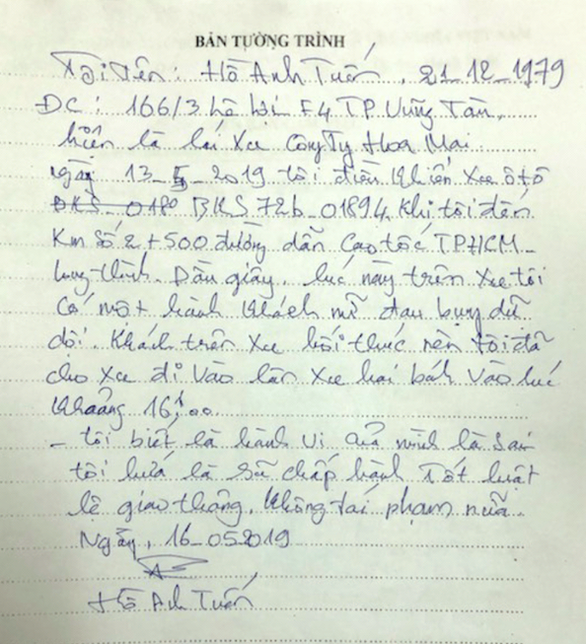 BẢN TƯỜNG TRÌNH
Tôi tên: Hồ Anh Tuấn, 21-12-1979
ĐC: 166/3 Lê Lợi F4 TP Vũng Tàu.
hiện là lái xe Công Ty Hoa Mai
ngày 13-5-2019 tôi điều khiển xe ôtô
BKS 0180 BKS 72b-01894. Khi tôi đến
Km số 2+500 đường dẫn cao tốc TPHCM-
Long thành. Dầu giây. lúc này trên xe tôi
có một hành khách nữ đau bụng dữ
dội. Khách trên xe hối thúc nên tôi đã
cho xe đi vào làn xe hai bánh vào lúc
khoảng 16h00.
- tôi biết là hành vi của mình là sai
tôi hứa là sẽ chấp hành tốt luật
lệ giao thông. không tái phạm nữa.
Ngày, 16-052019
Hồ Anh Tuấn